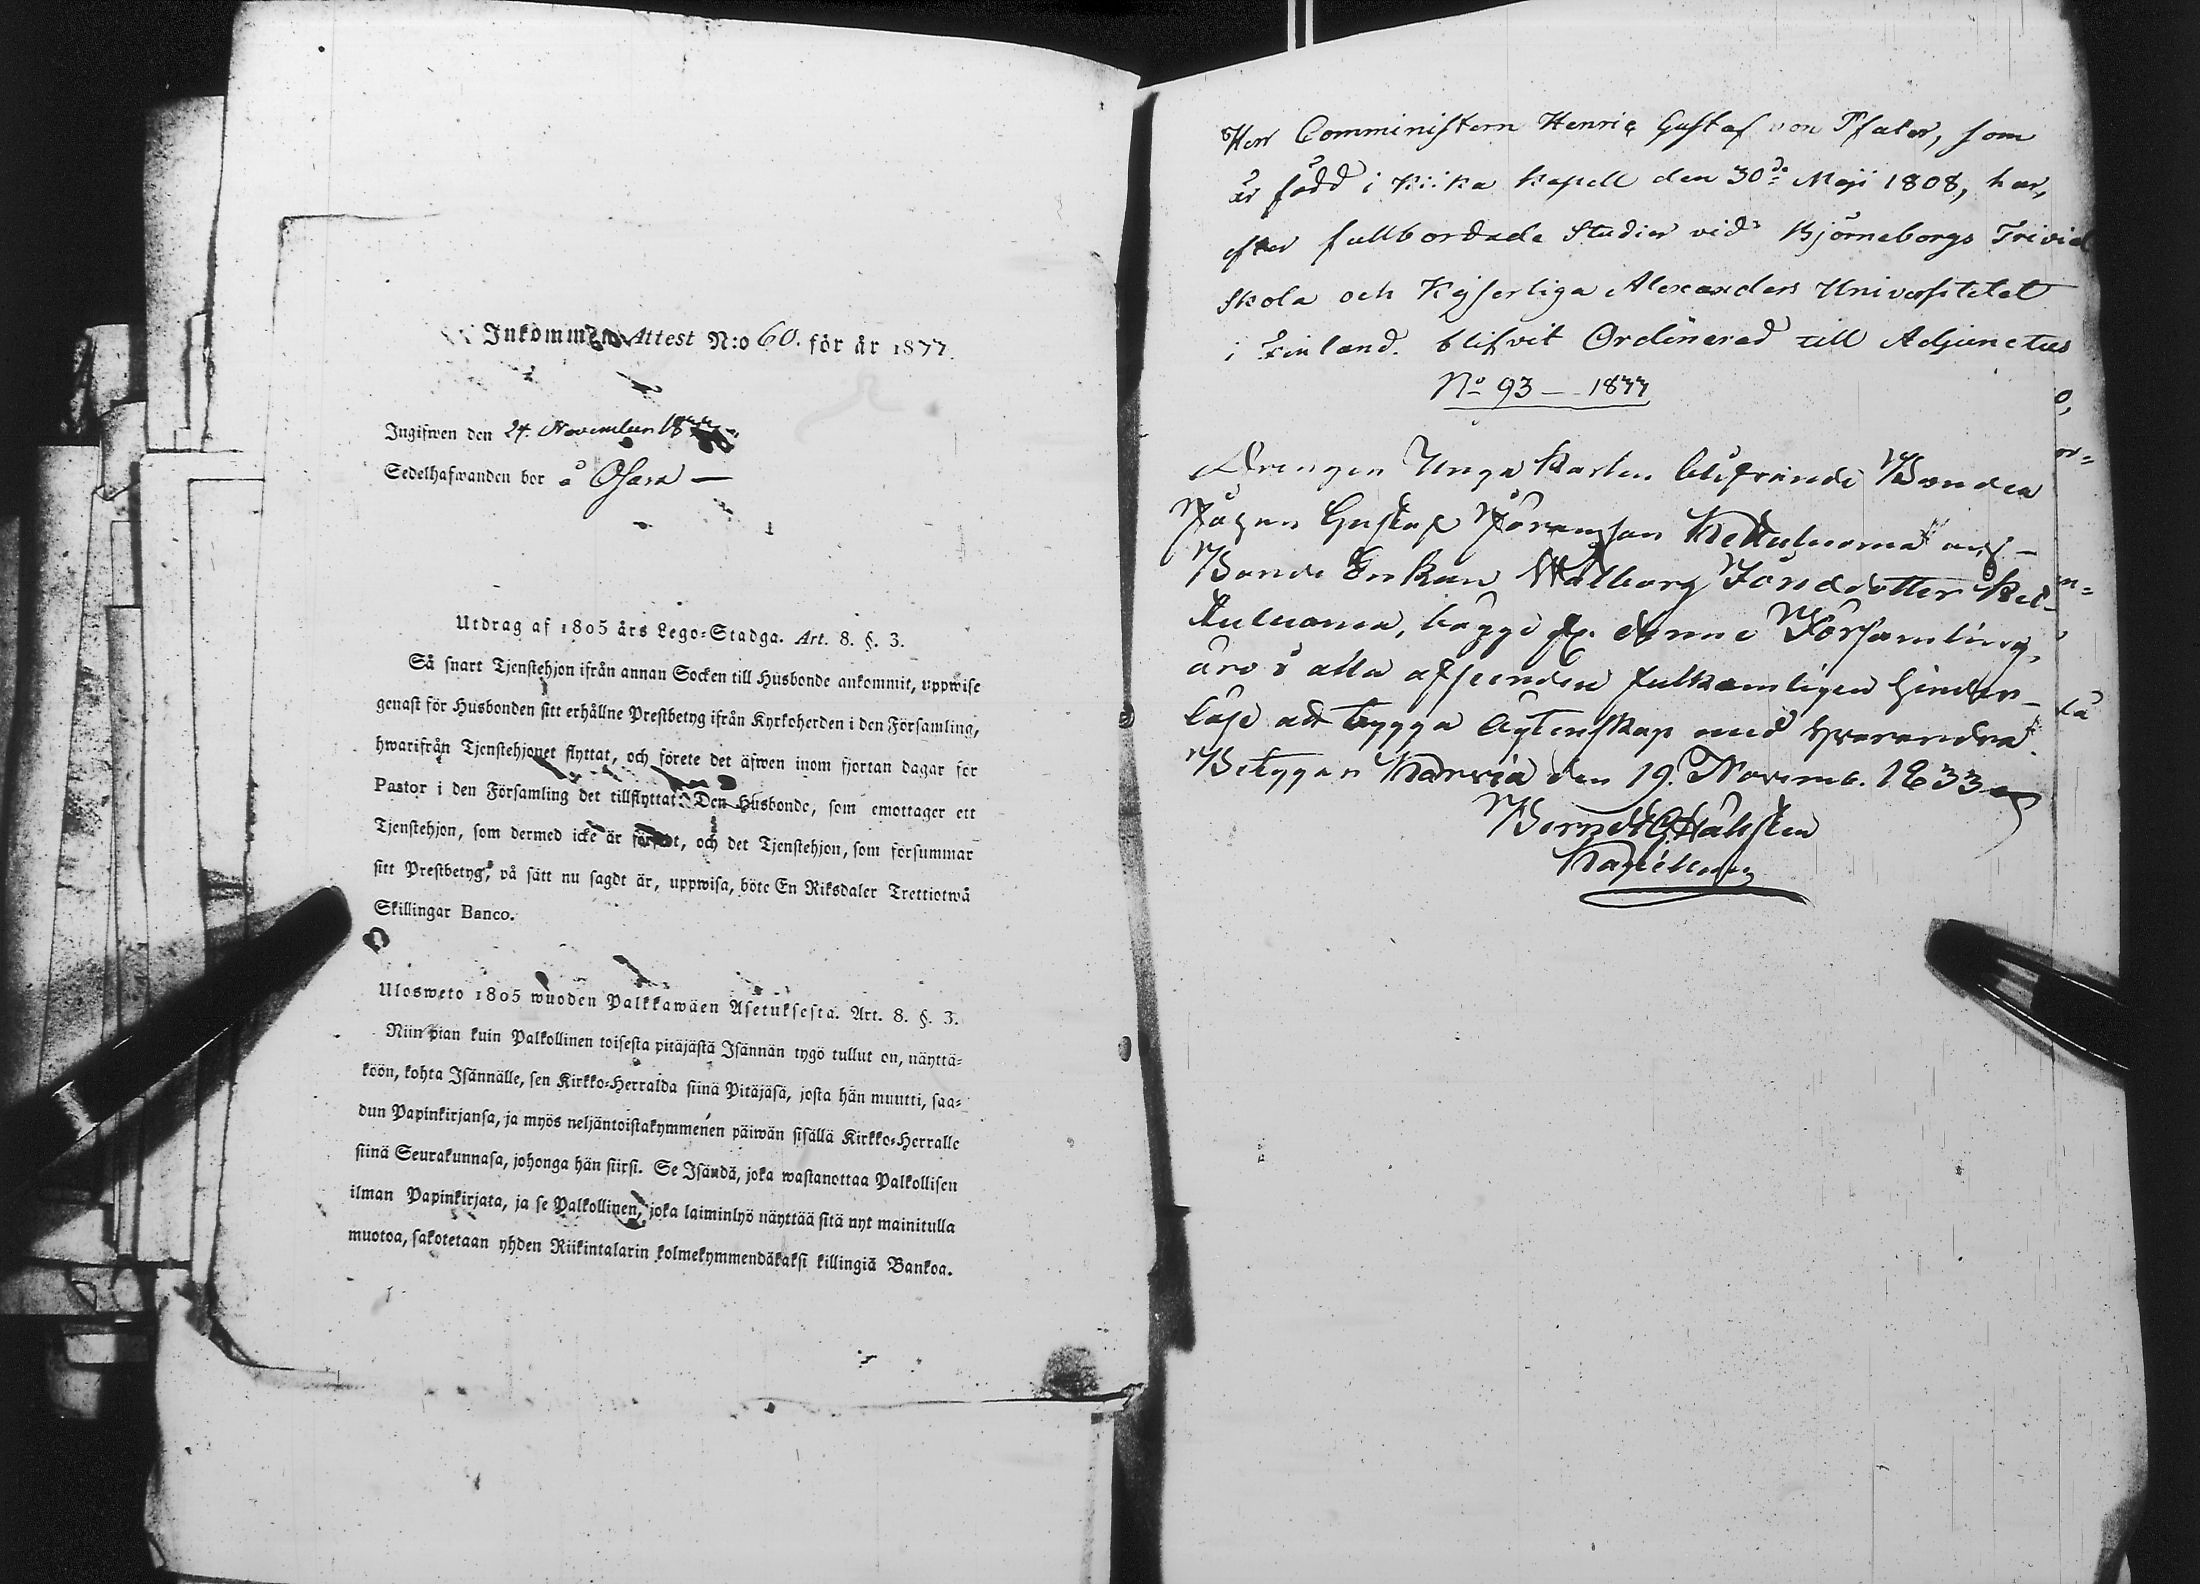 Inkommen Attest N:o 60. för år 1877.
Ingifwen den 24. November 1877
Sedelhafwanden bor å Osara —
Utdrag af 1805 års Lego=Stadga. Art. 8. §. 3.
Så snart Tjenstehjon ifrån annan Socken till Husbonde ankommit, uppwise
genast för Husbonden sitt erhållne Prestbetyg ifrån Kyrkoherden i den Församling,
hwarifrån Tjenstehjonet flyttat, och förete det äfwen inom fjortan dagar för
Pastor i den Församling det tillflyttat. Den Husbonde, som emottager ett
Tjenstehjon, som dermed icke är försedt, och det Tjenstehjon, som försummar
sitt Prestbetyg, på sätt nu sagdt är, uppwisa, böte En Riksdaler Trettiotwå
Skillingar Banco.
Ulosweto 1805 wuoden Palkkawäen Asetuksesta. Art. 8. §. 3.
Niin pian kuin Palkollinen toisesta pitäjästä Isännän tygö tullut on, näyttä=
köön, kohta Isännälle, sen Kirkko=Herralda siinä Pitäjäsä, josta hän muutti, saa=
dun Papinkirjansa, ja myös neljäntoistakymmenen päiwän sisällä Kirkko=Herralle
siinä Seurakunnasa, johonga hän siirsi. Se Isändä, joka wastanottaa Palkollisen
ilman Papinkirjata, ja se Palkollinen, joka laiminlyö näyttää sitä nyt mainitulla
muotoa, sakotetaan yhden Riikintalarin kolmekymmendäkaksi killingiä Bankoa.
Herr Comministern Henric Gustaf von Pfaler, som
är född i Kiika Kapell den 30de Maji 1808, har,
efter fullbordade Studier vid Björneborgs Trivial
Skola och Kejserliga Alexanders Universitetet
i Finland. blifvit Ordinerad till Adjunctus
No 93 — 1877
Drengen Unga Karlen blifvande Bonden
Johan Gustaf Göransson Kettuluoma och
Bonde Enkan Walborg Jönsdotter Ket=
tuluoma, bägge fr. denne Församling,
äro i alla afseenden fullkomligen hinder=
löse att bygga Ägtenskap med hvarandra.
Betygar Karvia den 19. Novemb. 1833
Berndt G. Hahsten
Kapellan